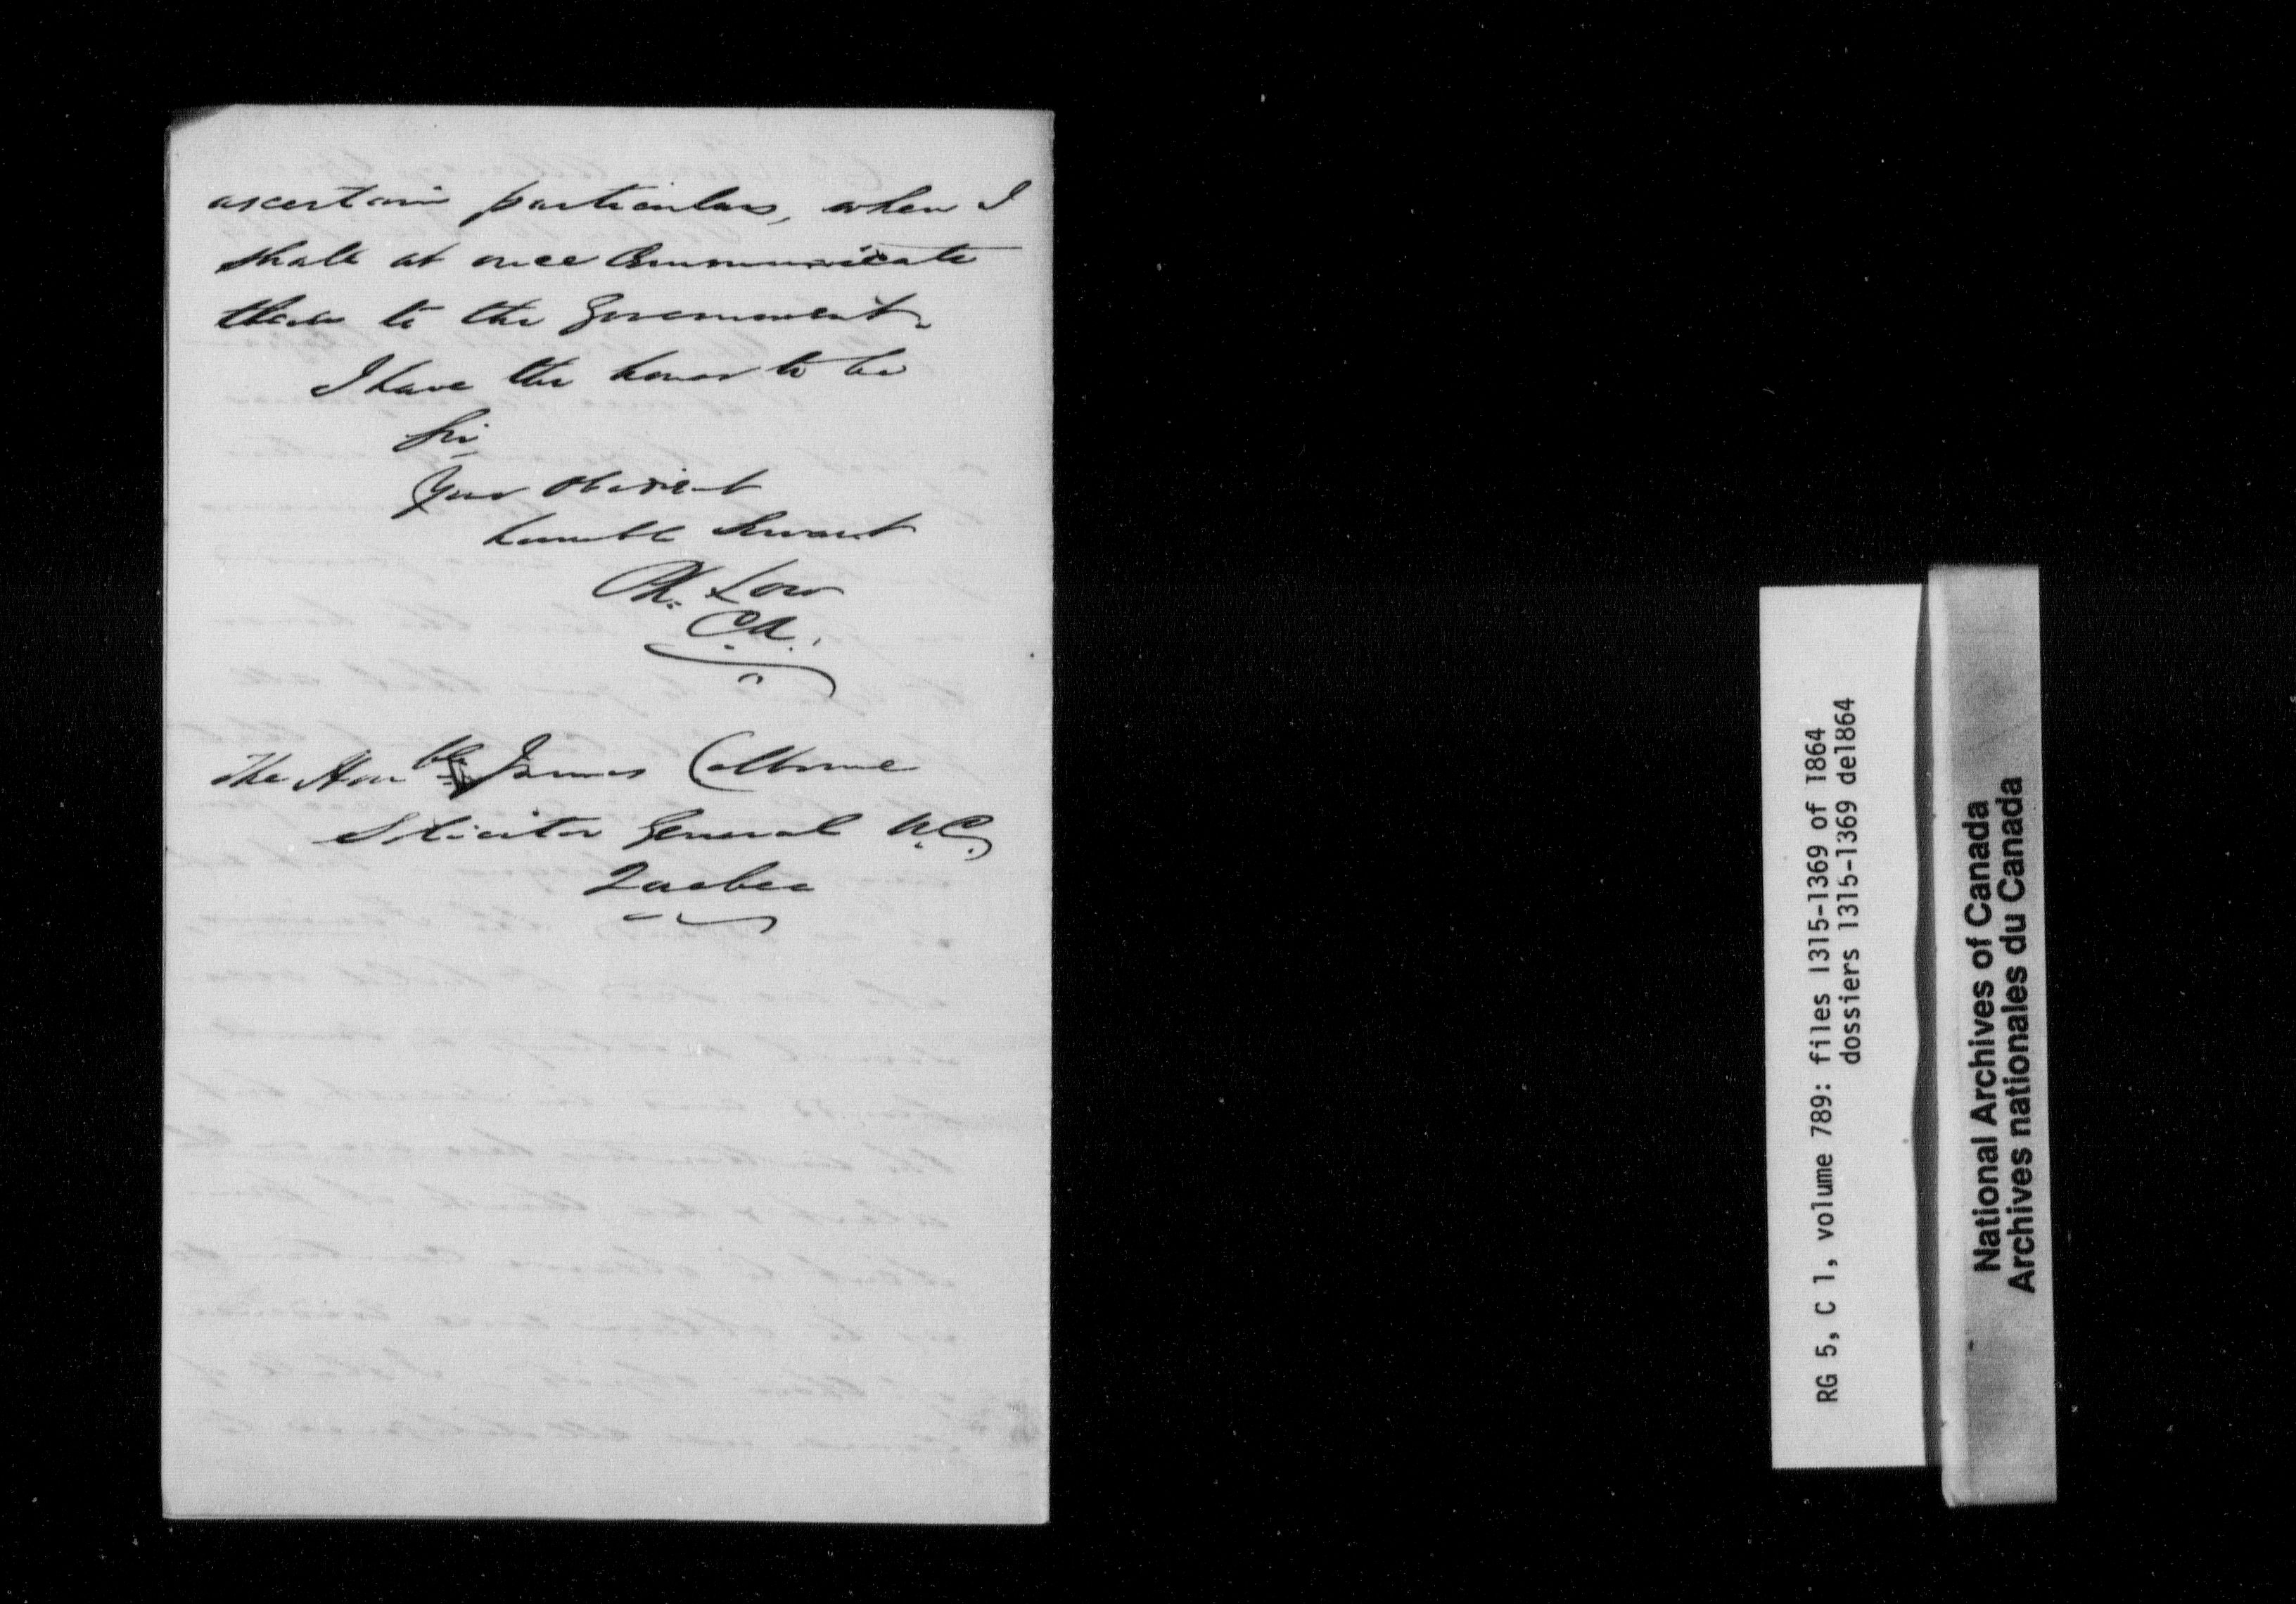 ascertain particulars, when I
shall at once Communicate
them to the Government.
I have the honor to be
Sir
Your obedient
humble Servant
Ph. Low
C.A.
The Honble James Colborne
Solicitor General U.C.
Quebec
RG 5, C 1, volume 789: files 1315-1369 of 1864
dossiers 1315-1369 de1864
National Archives of Canada
Archives nationales du Canada